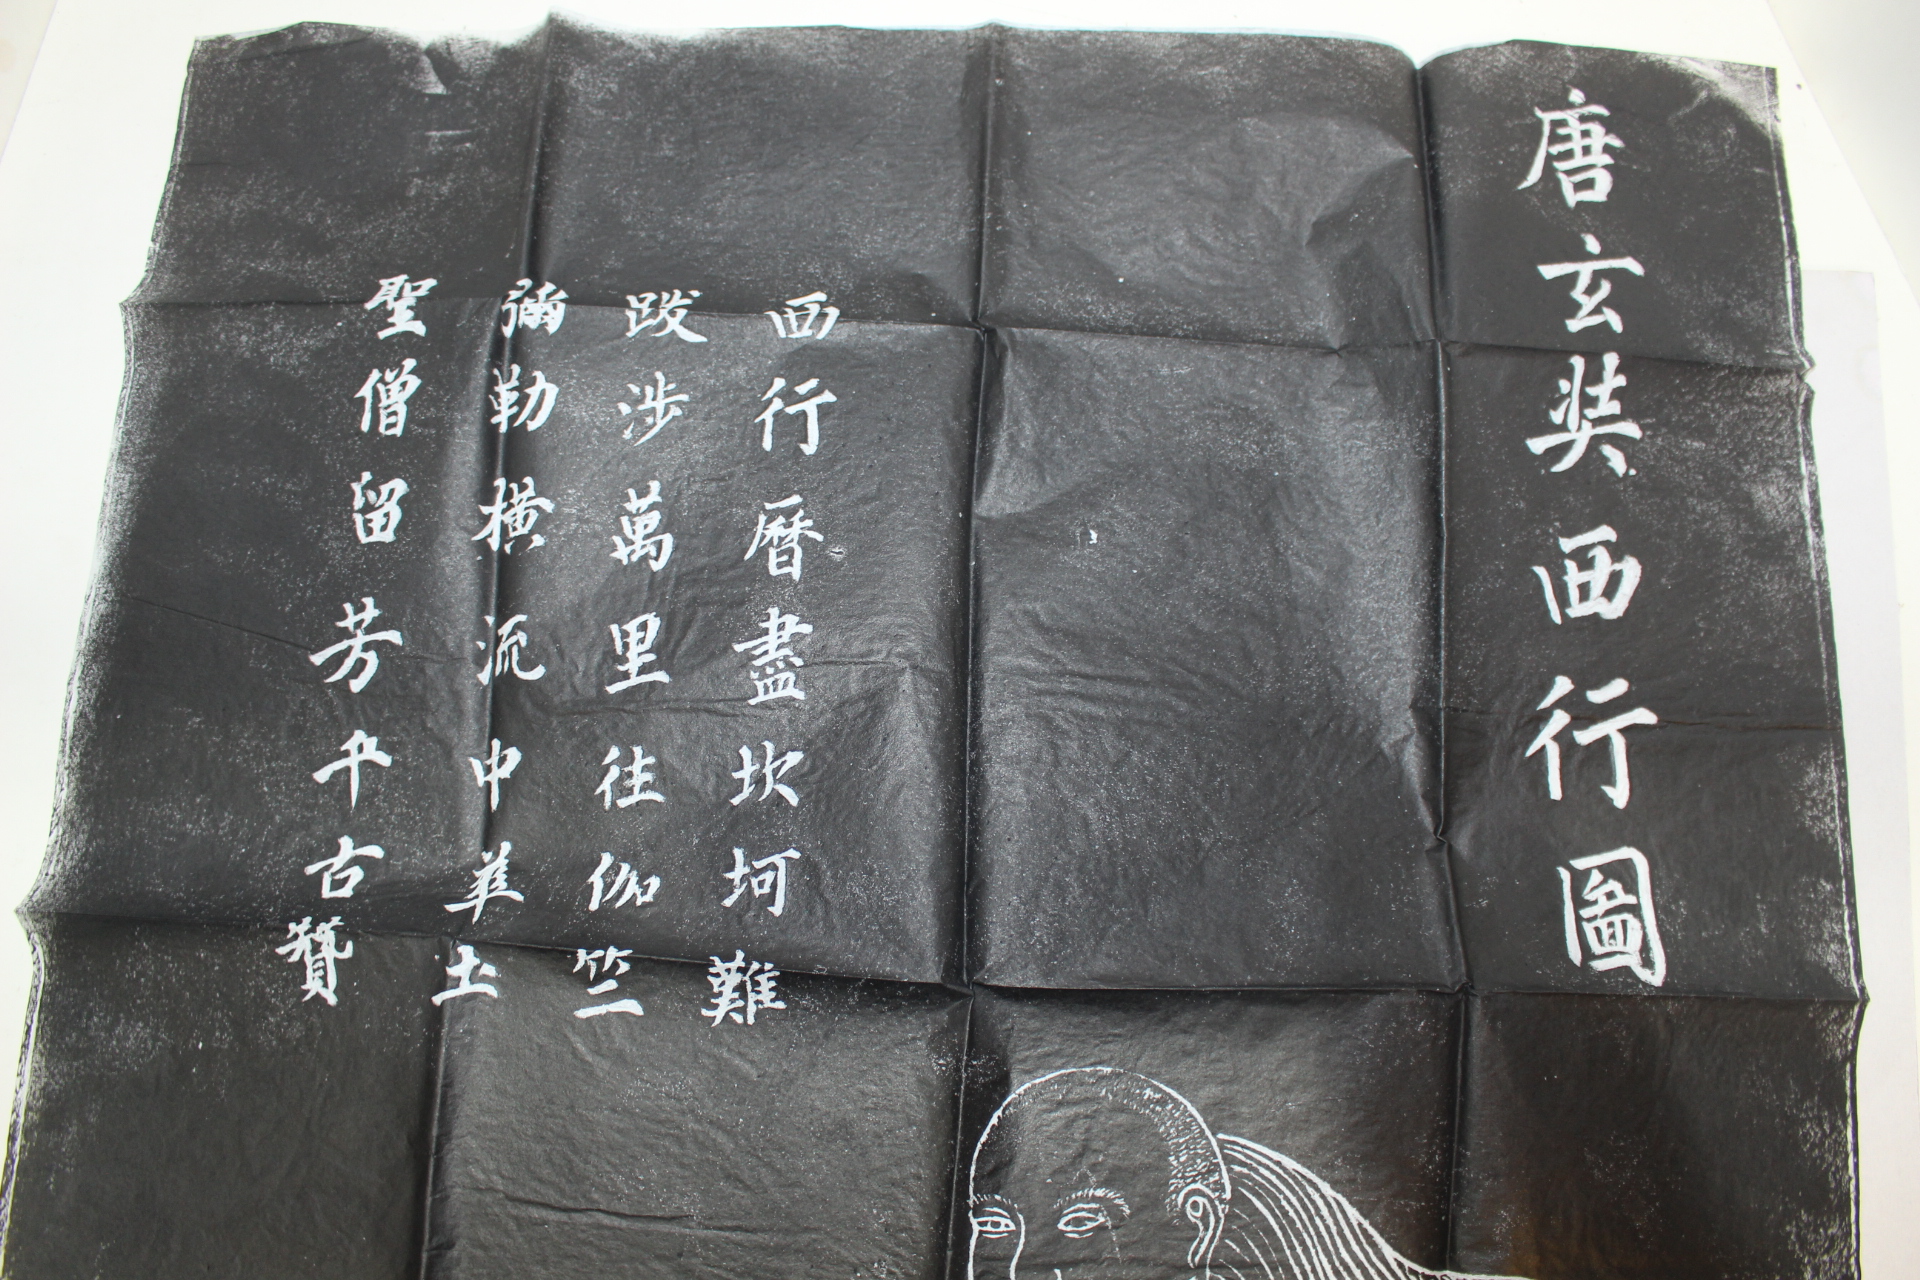 唐玄奘西行圖
西行曆盡坎坷難
跋涉萬里往伽竺
彌勒橫流中華土
聖僧留芳千古贊